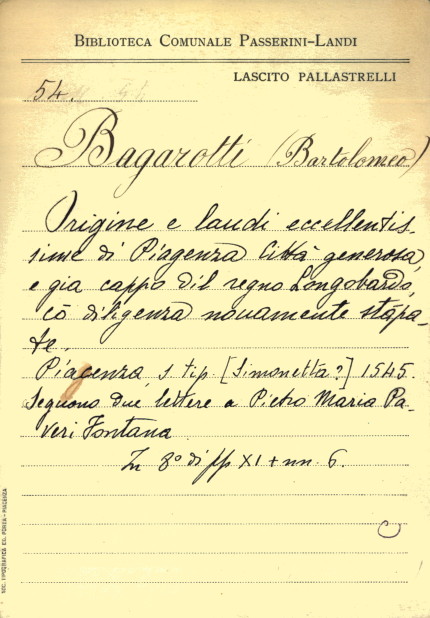 BIBLIOTECA COMUNALE PASSERINI-LANDI
LASCITO PALLASTRELLI
54.
Bagarotti (Bartolomeo)
Origine e laudi eccellentis-
sime di Piagenza Città generosa,
e gia cappo dil regno Longobardo,
cõ diligenza novamente stãpa-
te.
Piagenza, s. tip. [Simonetta?] 1545.
Seguono due lettere a Pietro Maria Pa-
veri Fontana.
In 8º di pp XI + nn. 6.
C
SOC. TIPOGRAFICA ED. PORTA - PIACENZA